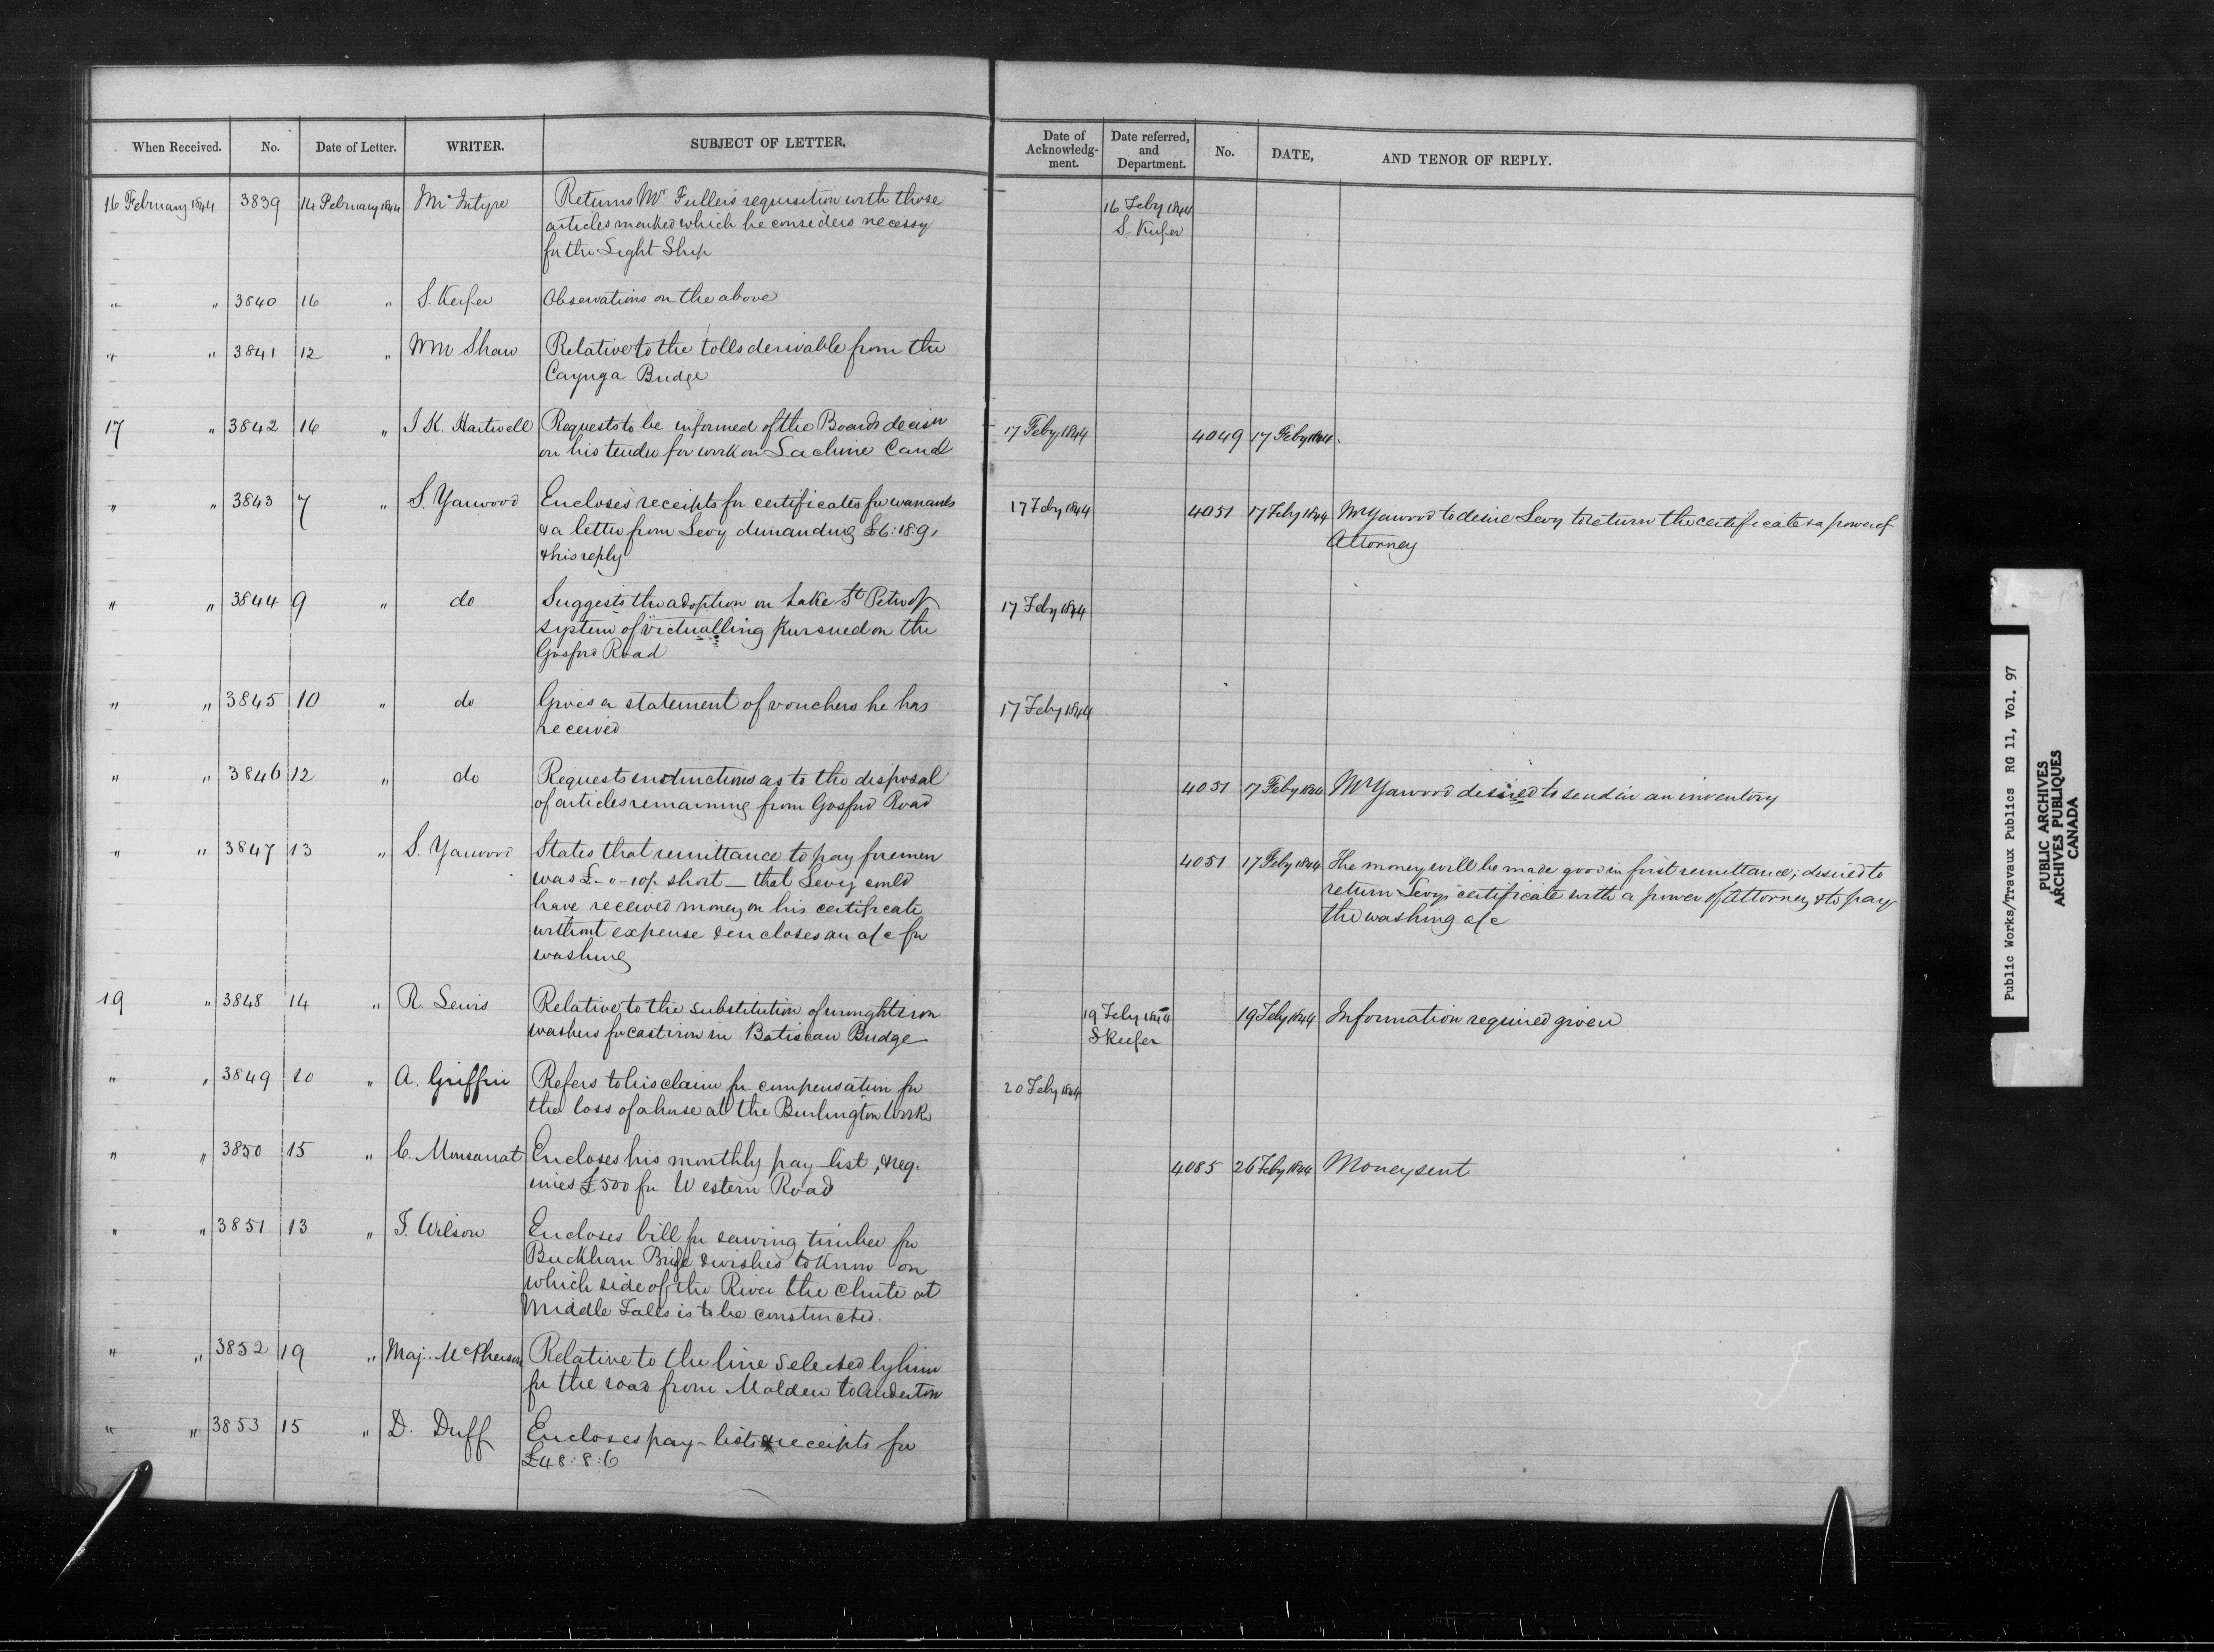 When Received. No. Date of Letter. WRITER. SUBJECT OF LETTER. Date of Acknowledg-ment. Date referred, and Department. No. DATE, AND TENOR OF REPLY.
16 February 1844 3839 14 February 1844 McIntyre Returns Mr Fullers requisition with those 16 Feby 1844
articles marked which he considers necessy S. Keefer
for the Light Ship
" " 3840 16 " S. Keefer Observations on the above
" " 3841 12 " Wm Shaw Relative to the tolls derivable from the
Cayuga Bridge
17 " 3842 16 " J K. Hartwell Requests to be informed of the Boards decisn 17 Feby 1844 4049 17 Feby 1844
on his tender for work on Lachine Canal
" " 3843 7 " S. Yarwood Encloses receipts for certificates for warrants 17 Feby 1844 4051 17 Feby 1844 Mr Yarwood to desire Levy to return the certificate & a power of
& a letter from Levy demanding £6:18:9, Attorney
& his reply
" " 3844 9 " do Suggests the adoption on Lake St Peter of 17 Feby 1844
system of victualling pursued on the
Gosford Road
" " 3845 10 " do Gives a statement of vouchers he has 17 Feby 1844
received
" " 3846 12 " do Requests instructions as to the disposal 4051 17 Feby 1844 Mr Yarwood desired to send in an inventory
of articles remaining from Gosford Road
" " 3847 13 " S. Yarwood States that remittance to pay foremen 4051 17 Feby 1844 The money will be made good in first remittance; desired to
was £-0-10/- short — that Levy could return Levys certificate with a power of Attorney & to pay
have received money on his certificate the washing a/c
without expense & encloses an a/c for
washing
19 " 3848 14 " R. Lewis Relative to the substitution of wrought iron 19 Feby 1844 19 Feby 1844 Information required given
washers for cast iron in Batiscan Bridge S Keefer
" " 3849 10 " A. Griffin Refers to his claim for compensation for 20 Feby 1844
the loss of a horse at the Burlington Works
" " 3850 15 " C. Monsarrat Encloses his monthly pay-list, & req. 4085 26 Feby 1844 Money sent
uires £500 for Western Road
" " 3851 13 " T. Wilson Encloses bill for sawing timber for
Buckhorn Bridge & wishes to know on
which side of the River the chute at
Middle Falls is to be constructed.
" " 3852 19 " Maj. McPherson Relative to the line selected by him
for the road from Malden to Anderton
" " 3853 15 " D. Duff Encloses pay-lists & receipts for
£48:8:6
Public Works/Travaux Publics RG 11, Vol. 97
PUBLIC ARCHIVES
ARCHIVES PUBLIQUES
CANADA